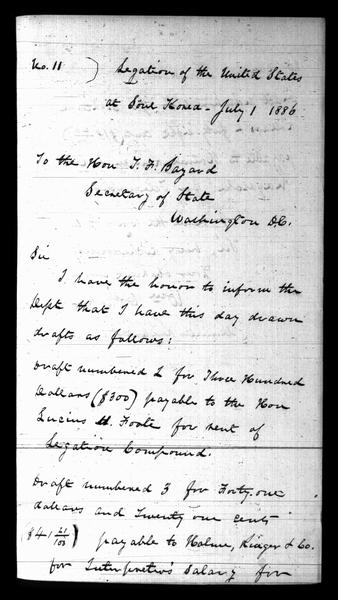 No. 11 ) Legation of the United States
at Söul Korea - July 1 1886
To the Hon T. F. Bayard
Secretary of State
Washington D.C.
Sir
I have the honor to inform the
Dept that I have this day drawn
drafts as follows:
Draft numbered 2 for Three Hundred
Dollars ($300) payable to the Hon
Lucius H. Foote for rent of
Legation Compound.
Draft numbered 3 for Forty one
dollars and Twenty one cents
($41 21/100) payable to Holme, Ringer & Co.
for Interpreter's Salary for